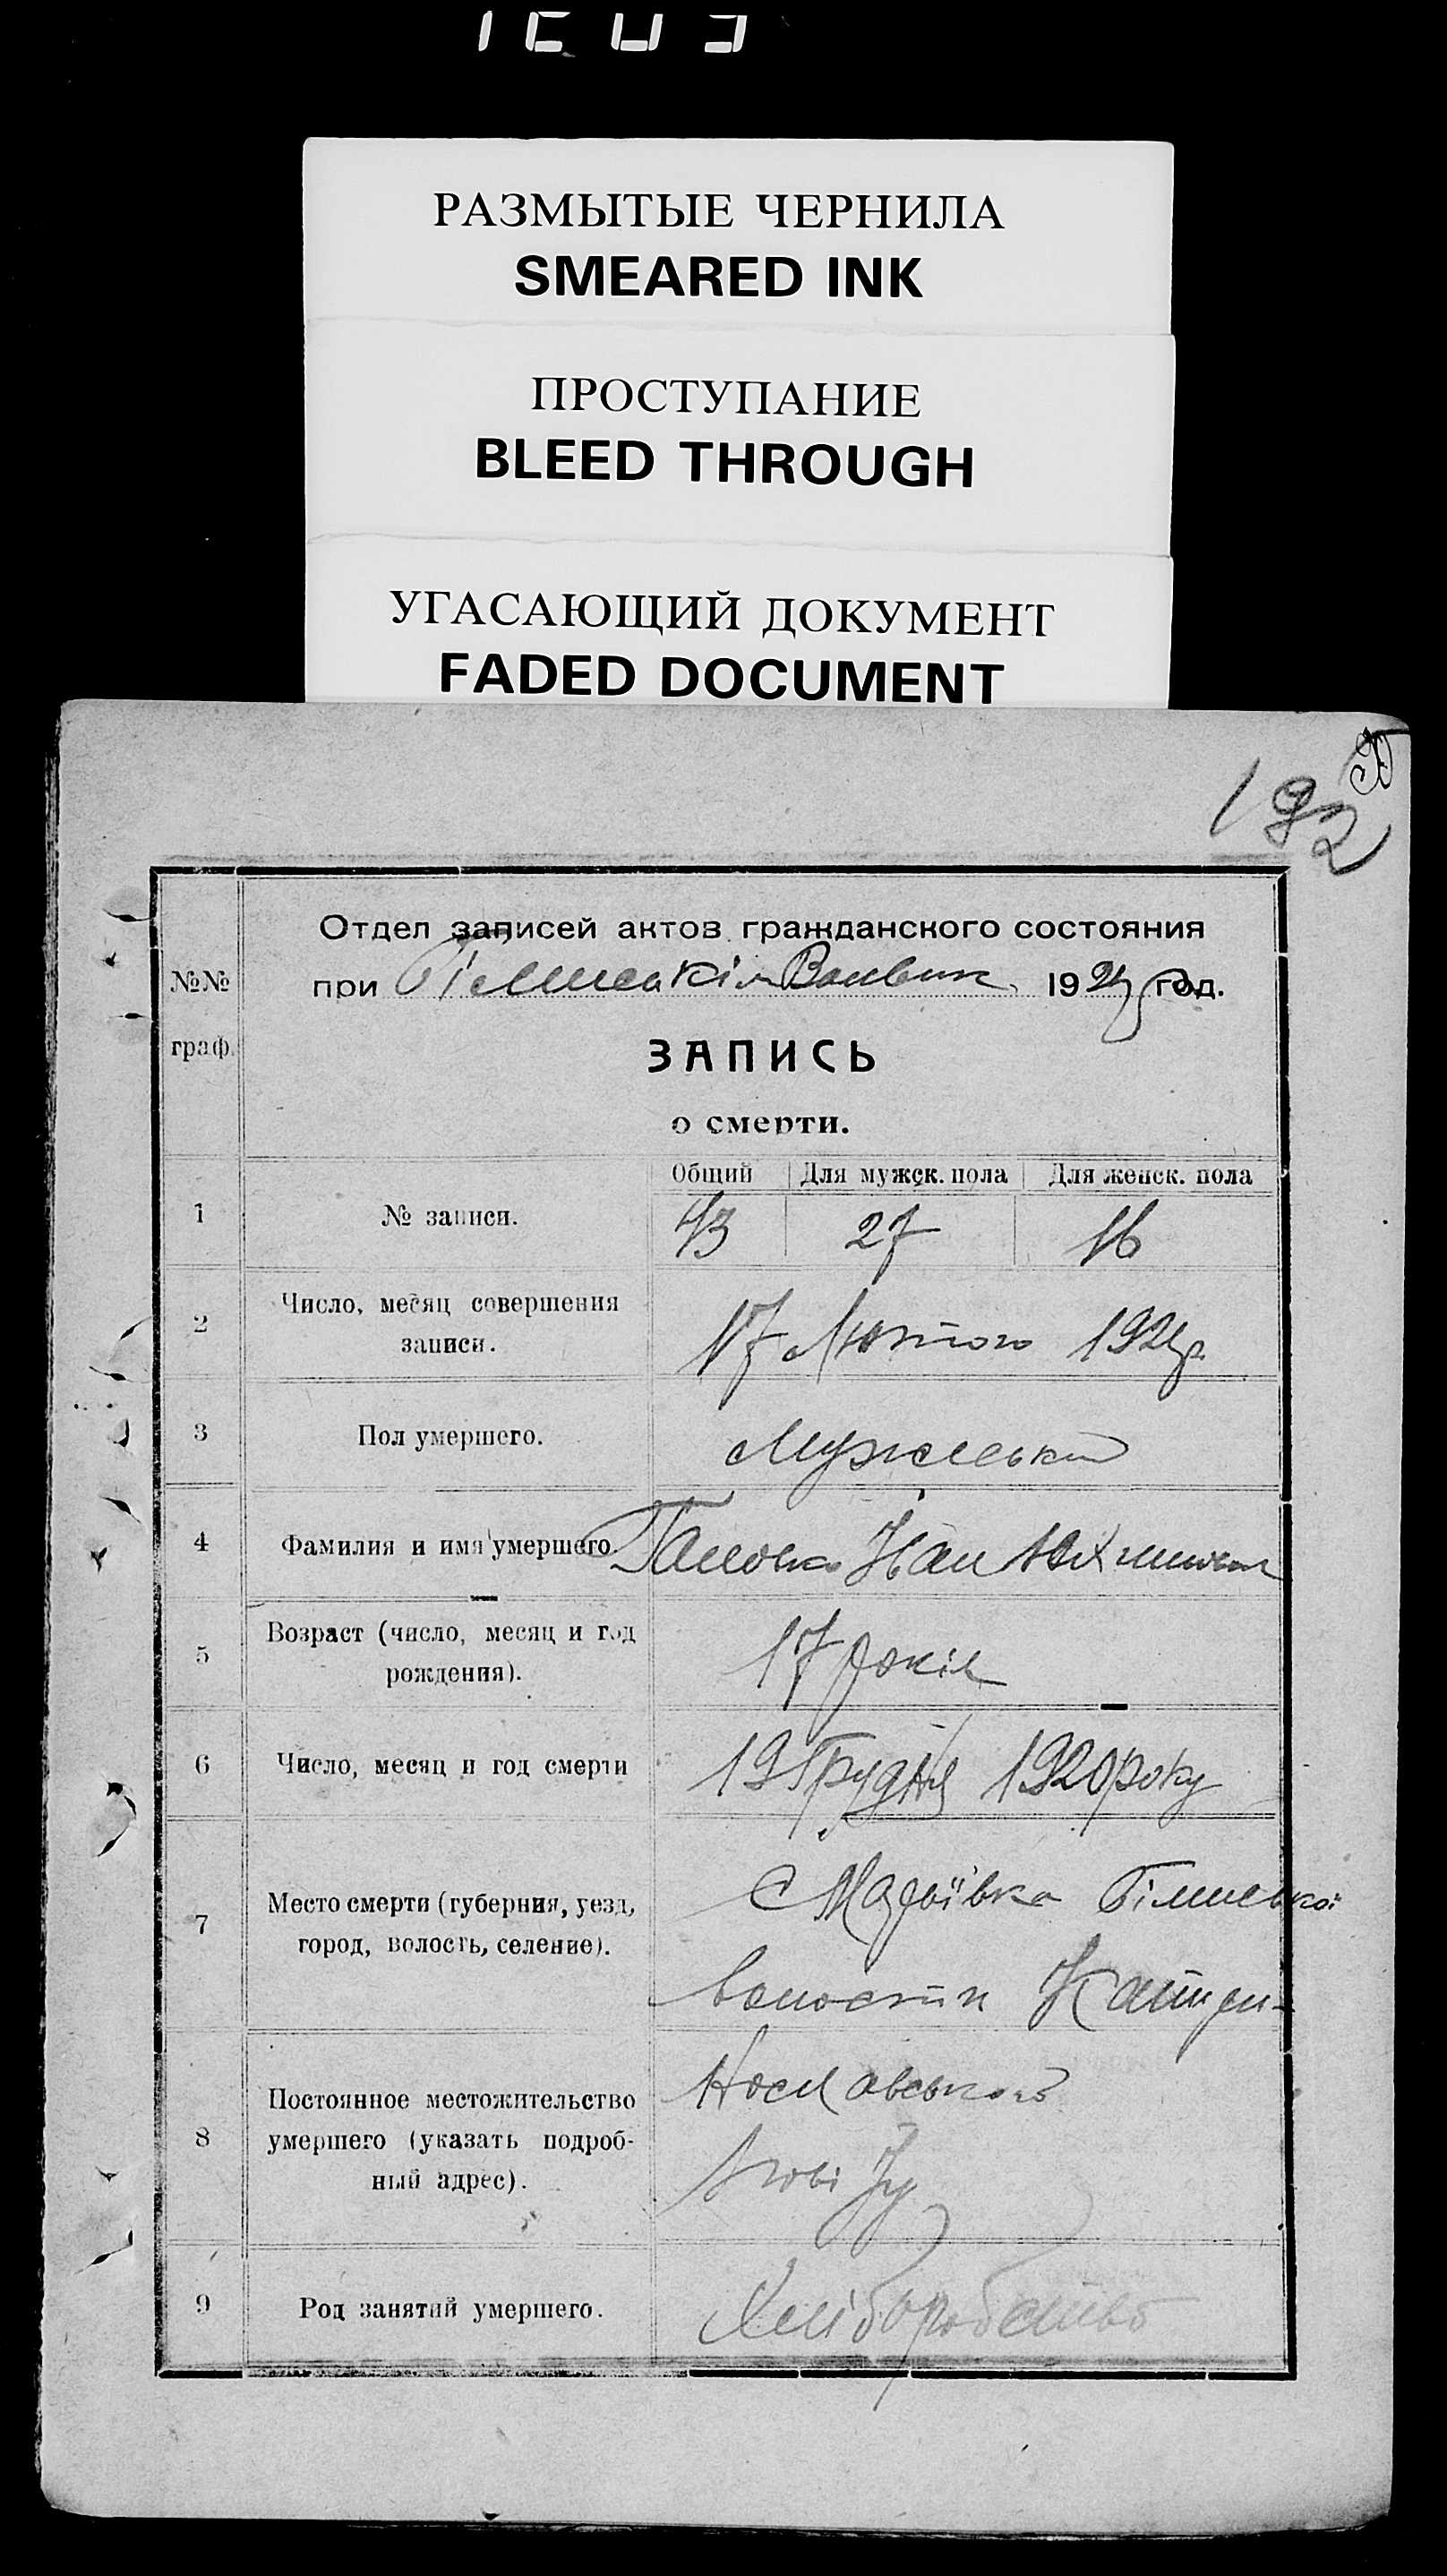 РАЗМЫТЫЕ ЧЕРНИЛА
SMEARED INK
ПРОСТУПАНИЕ
BLEED THROUGH
УГАСАЮЩИЙ ДОКУМЕНТ
FADED DOCUMENT
192
Отдел записей актов гражданского состояния
при 192 год.
№№ граф.
ЗАПИСЬ
о смерти.
Общий Для мужск. пола Для женск. пола
1 № записи. 43 27 16
2 Число, месяц совершения
записи. 17 Лютого 1921 р
3 Пол умершего. Мужеський
4 Фамилия и имя умершего
5 Возраст (число, месяц и год
рождения). 17 років
6 Число, месяц и год смерти 19 Грудня 1920 року
7 Место смерти (губерния, уезд,
город, волость, селение).
С Маріївка Білинської
волости Катери-
8 Постоянное местожительство
умершего (указать подроб-
ный адрес).
нославського
повіту
9 Род занятий умершего. Хліборобство